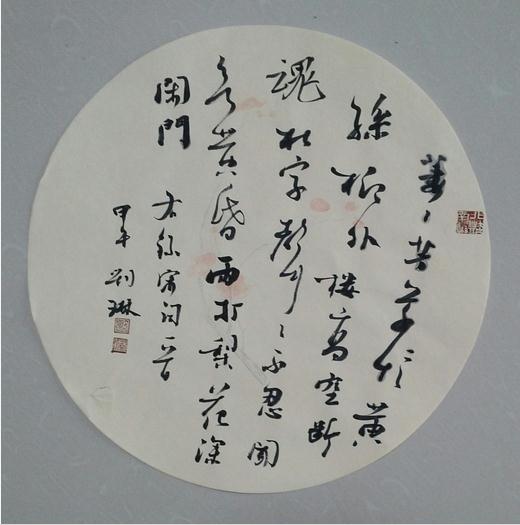 萋〻芳草憶黄
孫柳外樓高空斷
魂杜宇聲〻不忍聞
欲黄昏雨打梨花深
閑門 右錄宋詞一首
甲午 劉琳